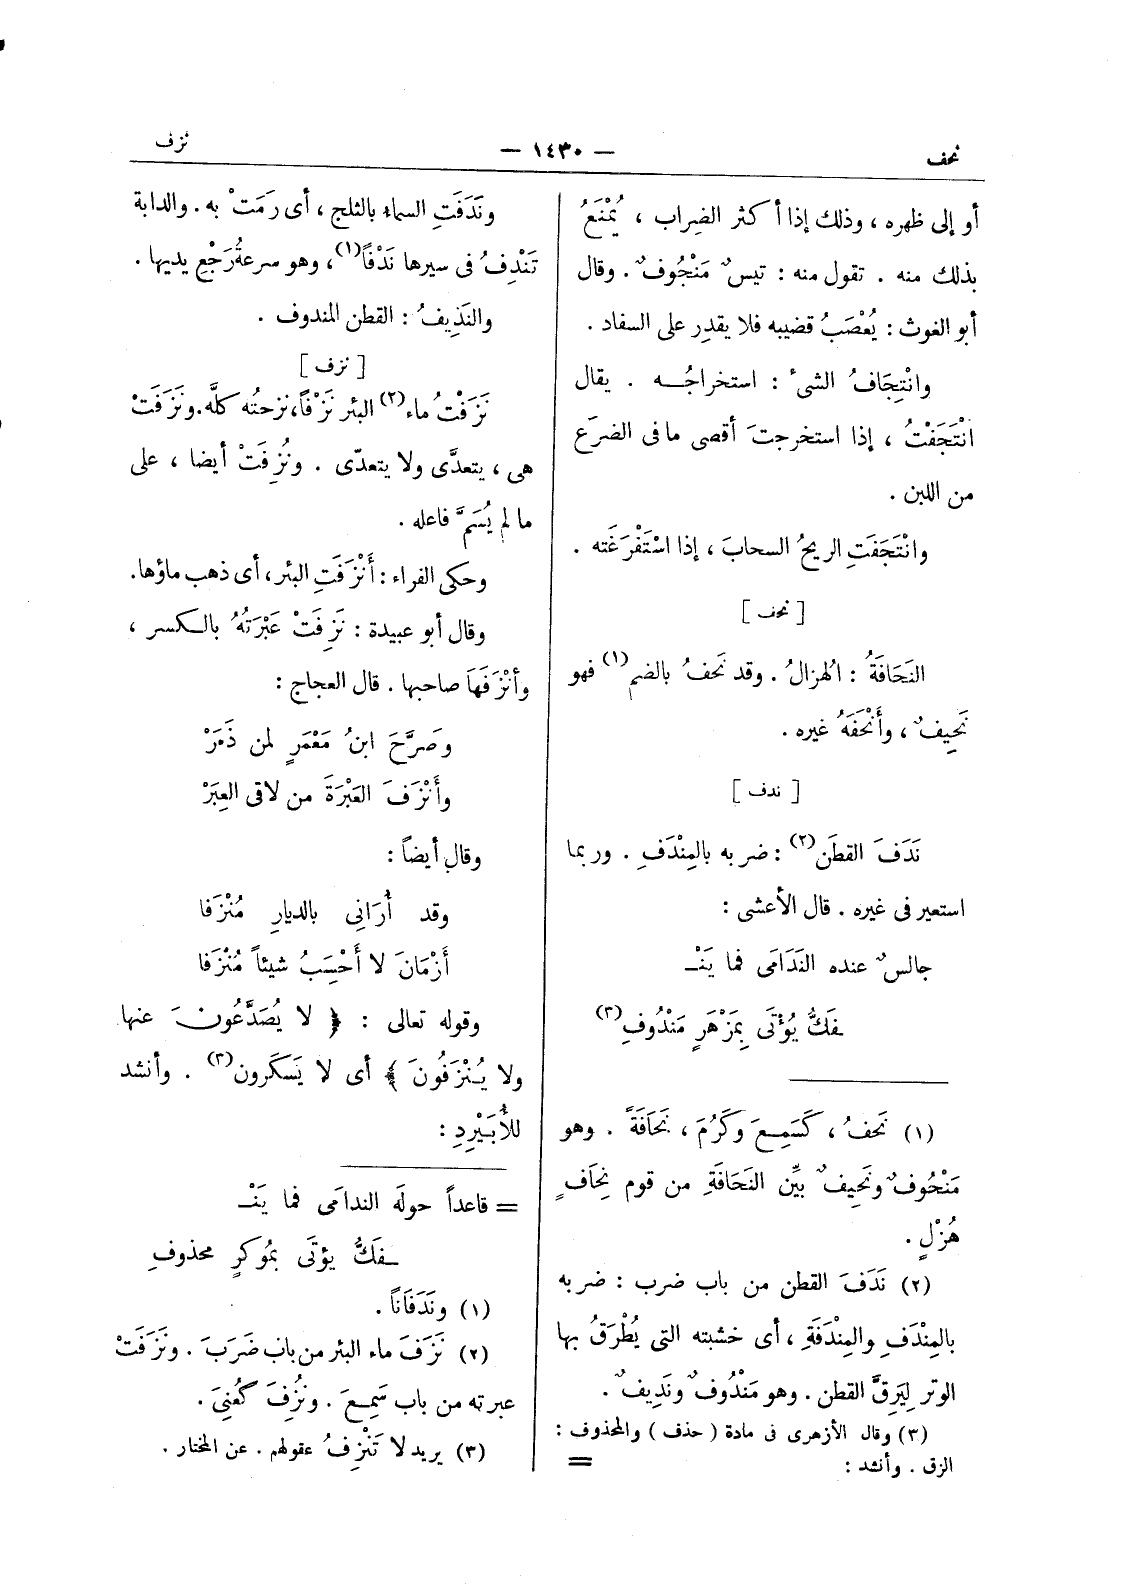 نحف
— ١٤٣٠ —
نزف
أو إلى ظهره ، وذلك إذا أكثر الضِراب ، يُمْنَعُ
بذلك منه . تقول منه : تيسٌ مَنْجُوفٌ . وقال
أبو الغوث : يُعْصَبُ قضيبه فلا يقدِر على السفاد .
وانْتِجَافُ الشىء : استخراجُــه . يقال
انْتَجَفْتُ ، إذا استخرجتَ أقصى ما فى الضرَع
من اللبن .
وانْتَجَفَتِ الريحُ السحابَ ، إذا اسْتَفْرَغَته .
[ نحف ]
النَحَافَةُ : الهزالُ . وقد نَحفُ بالضم (١) فهو
نَحِيفٌ ، وأَنْحَفَهُ غيره .
[ ندف ]
نَدَفَ القطَن (٢) : ضربه بالمِنْدَفِ . وربما
استعير فى غيره . قال الأعشى :
جالسٌ عنده النَدَامَى فما يَنْـ
ـفَكُّ يُؤْتَى بِمَزْهَرٍ مَنْدُوفِ (٣)
(١) نَحفُ ، كَسَمِعَ وكَرُمَ ، نَحَافَةً . وهو
مَنْحُوفٌ ونَحِيفٌ بيِّن النَحَافَةِ من قوم نِحَافٍ
هُزْلٍ .
(٢) نَدَفَ القطن من باب ضرب : ضربه
بالمِنْدَفِ والمِنْدَفَةِ ، أى خشبته التى يُطْرَقُ بها
الوتر لِيَرِقَّ القطن . وهو مَنْدُوفٌ ونَدِيفٌ .
(٣) وقال الأزهرى فى مادة ( حذف ) والمحذوف :
الزق . وأنشد : =
ونَدَفَتِ السماء بالثلج ، أى رَمَتْ به . والدابة
تَنْدِفُ فى سيرها نَدْفاً (١) ، وهو سرعةُ رَجْعِ يديها .
والنَدِيفُ : القطن المندوف .
[ نزف ]
نَزَفْتُ ماء (٢) البئر نَزْفاً، نزحتُه كلَّه. ونَزَفَتْ
هى ، يتعدَّى ولا يتعدّى . ونُزِفَتْ أيضا ، على
ما لم يُسَمَّ فاعله .
وحكى الفراء : أَنْزَفَتِ البئر ، أى ذهب ماؤها.
وقال أبو عبيدة : نَزِفَتْ عَبْرَتُهُ بالـكسر ،
وأنْزَفَهَا صاحبها . قال العجاج :
وصَرَّحَ ابنُ مَعْمَرٍ لمن ذَمَرْ
وأَنْزَفَ العَبْرَةَ من لاقى العِبَرْ
وقال أيضاً :
وقد أُرَانِى بالديارِ مُنْزَفا
أَزْمَانَ لا أَحْسِبُ شيئاً مُنْزَفا
وقوله تعالى : ﴿ لا يُصَدَّعُونَ عنها
ولا يُنْزَفُونَ ﴾ أى لا يَسكَرون (٣) . وأنشد
للأُبَيْرِدِ :
= قاعداً حولَه الندامَى فما يَنْـ
ـفَكُّ يؤتَى بمُوكرٍ محذوفِ
(١) ونَدَفَاناً .
(٢) نَزَفَ ماء البئر من باب ضَرَبَ . ونَزَفَتْ
عبرته من باب سَمِعَ . ونُزِفَ كَعُنِىَ .
(٣) يريد لا تَنْزِفُ عقولهم . عن المختار .